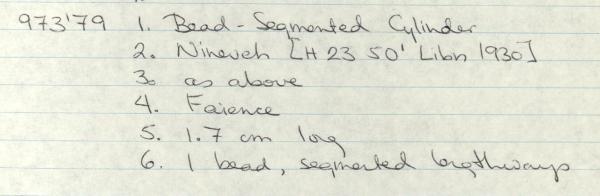 973'79 1. Bead - Segmented Cylinder
2. Nineveh [H 23 50' Libn 1930]
3. as above
4. Faience
5. 1.7 cm long
6. 1 bead, segmented lengthways